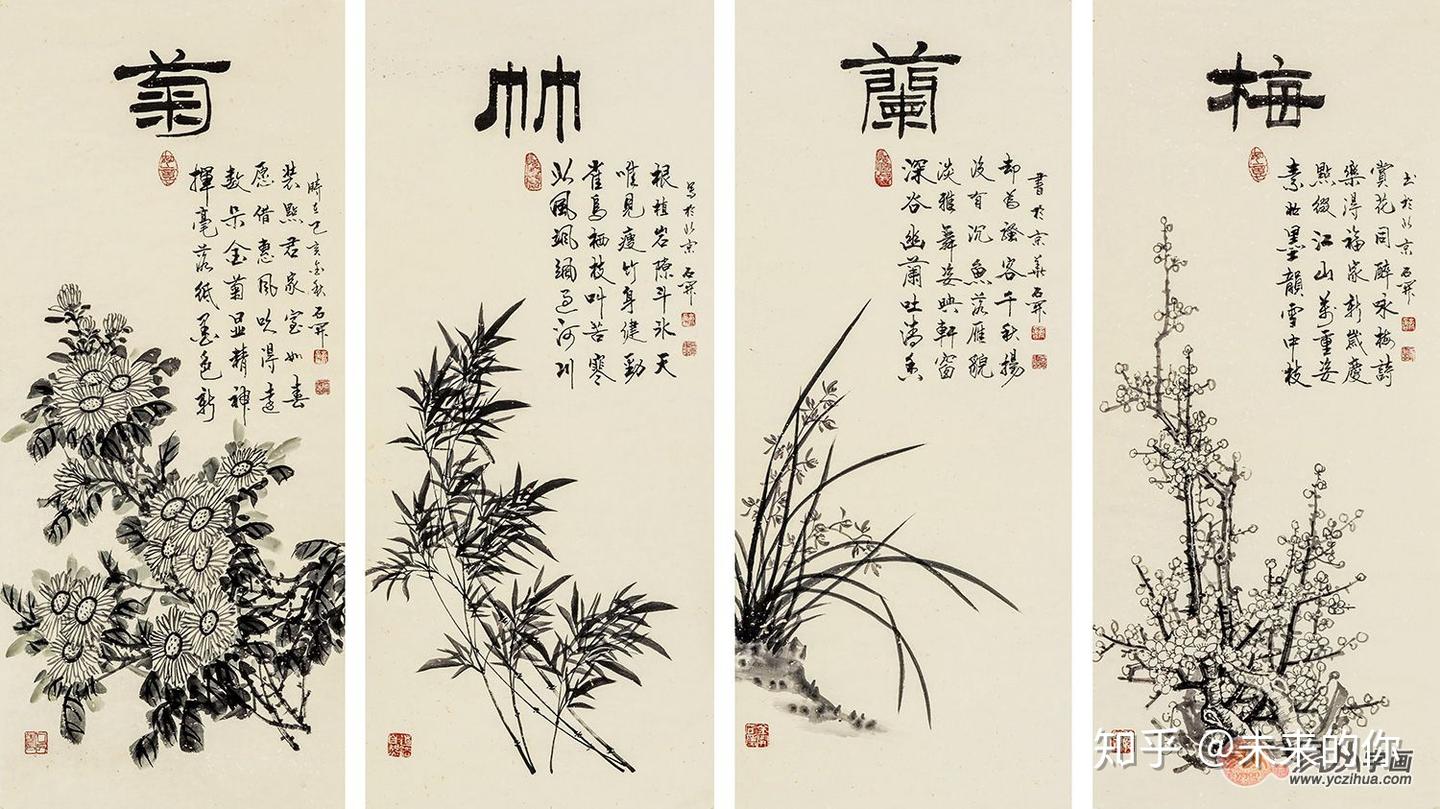 梅
素妝墨韻雪中枝
點綴江山萬重姿
樂得福家新歲慶
賞花同醉咏梅詩
书於北京 石開
蘭
深谷幽蘭吐清香
淡雅舞姿映軒窗
沒有沉魚落雁貌
却為騷客千秋揚
書於京華石開
竹
風颯河川
雀鳥栖枝叫苦寒
唯見瘦竹身健勁
根植岩隙斗冰天
写於北京 石開
菊
揮毫落紙墨色新
數朵金菊显精神
愿借惠風吹得遠
装點君家室如春
時在己亥金秋石開
知乎 @未来的你
字画
www.yczihua.com